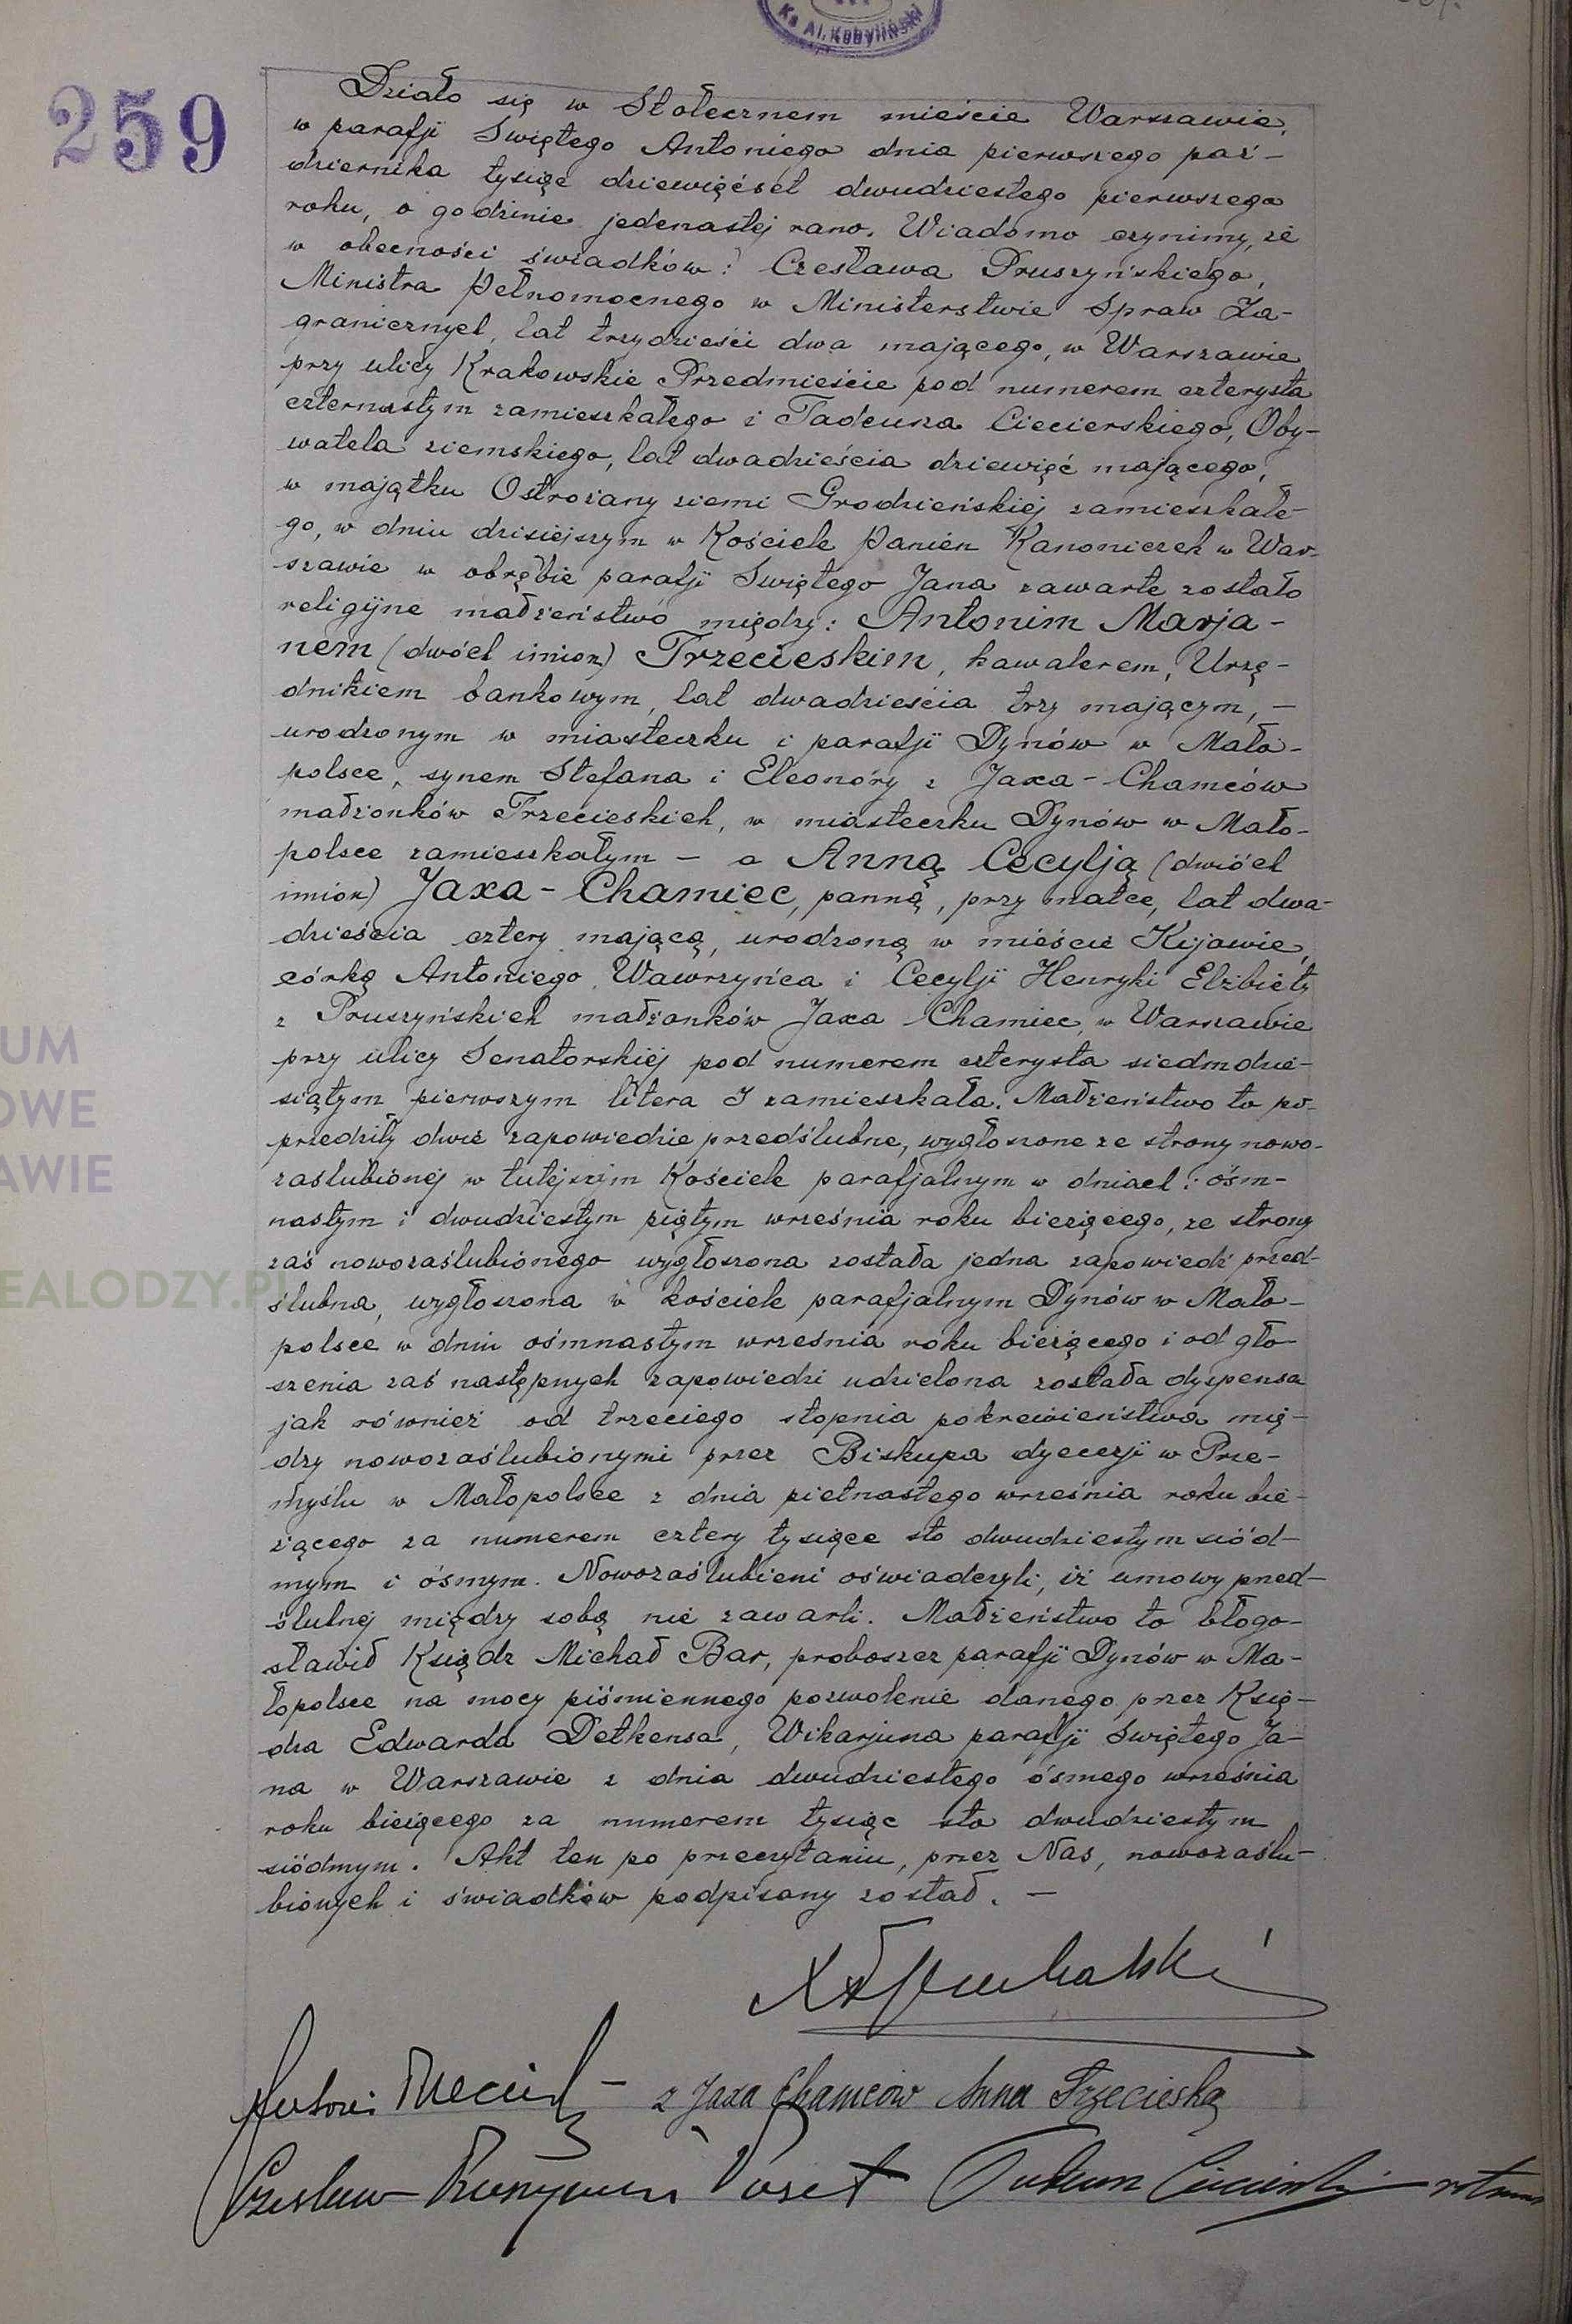 Ks Al. Kobyliński
259
Działo się w Stołecznem mieście Warszawie,
w parafji Świętego Antoniego dnia pierwszego paź-
dziernika tysiąc dziewięćset dwudziestego pierwszego
roku, o godzinie jedenastej rano. Wiadomo czynimy, że
w obecności świadków: Czesława Pruszyńskiego,
Ministra Pełnomocnego w Ministerstwie Spraw Za-
granicznych, lat trzydzieści dwa mającego, w Warszawie
przy ulicy Krakowskie Przedmieście pod numerem czterysta
czternastym zamieszkałego i Tadeusza Ciecierskiego, Oby-
watela ziemskiego, lat dwadzieścia dziewięć mającego,
w majątku Ostrożany ziemi Grodzieńskiej zamieszkałe-
go, w dniu dzisiejszym w Kościele Panien Kanoniczek w War-
szawie w obrębie parafji Świętego Jana zawarte zostało
religijne małżeństwo między: Antonim Marja-
nem (dwóch imion) Trzecieskim, kawalerem, Urzę-
dnikiem bankowym, lat dwadzieścia trzy mającym, –
urodzonym w miasteczku i parafji Dynów w Mało-
polsce, synem Stefana i Eleonóry z Jaxa-Chamców
małżonków Trzecieskich, w miasteczku Dynów w Mało-
polsce zamieszkałym – a Anną Cecylją (dwóch
imion) Jaxa-Chamiec, panną, przy matce, lat dwa-
dzieścia cztery mającą, urodzoną w mieście Kijowie,
córką Antoniego Wawrzyńca i Cecylji Henryki Elżbiety
z Pruszyńskich małżonków Jaxa Chamiec, w Warszawie
przy ulicy Senatorskiej pod numerem czterysta siedmdzie-
siątym pierwszym litera J zamieszkała. Małżeństwo to po-
przedziły dwie zapowiedzie przedślubne, wygłoszone ze strony nowo-
zaślubionej w tutejszym Kościele parafjalnym w dniach: ośm-
nastym i dwudziestym piątym września roku bieżącego, ze strony
zaś nowozaślubionego wygłoszona została jedna zapowiedź przed-
ślubna, wygłoszona w kościele parafjalnym Dynów w Mało-
polsce w dniu ośmnastym września roku bieżącego i od gło-
szenia zaś następnych zapowiedzi udzielona została dyspensa
jak również od trzeciego stopnia pokrewieństwa mię-
dzy nowozaślubionymi przez Biskupa dyecezji w Prze-
myślu w Małopolsce z dnia piętnastego września roku bie-
żącego za numerem cztery tysiące sto dwudziestym siód-
mym i ósmym. Nowozaślubieni oświadczyli, iż umowy przed-
ślubnej między sobą nie zawarli. Małżeństwo to błogo-
sławił Ksiądz Michał Bar, proboszcz parafji Dynów w Ma-
łopolsce na mocy piśmiennego pozwolenie danego przez Księ-
dza Edwarda Detkensa, Wikarjusza parafji Świętego Ja-
na w Warszawie z dnia dwudziestego ósmego września
roku bieżącego za numerem tysiąc sto dwudziestym
siódmym. Akt ten po przeczytaniu, przez Nas, nowozaślu-
bionych i świadków podpisany został. –
Antoni Trzecieski – z Jaxa Chamców Anna Trzecieska
Czesław Pruszyński Tadeusz Ciecierski
UM
OWE
AWIE
EALODZY.PL